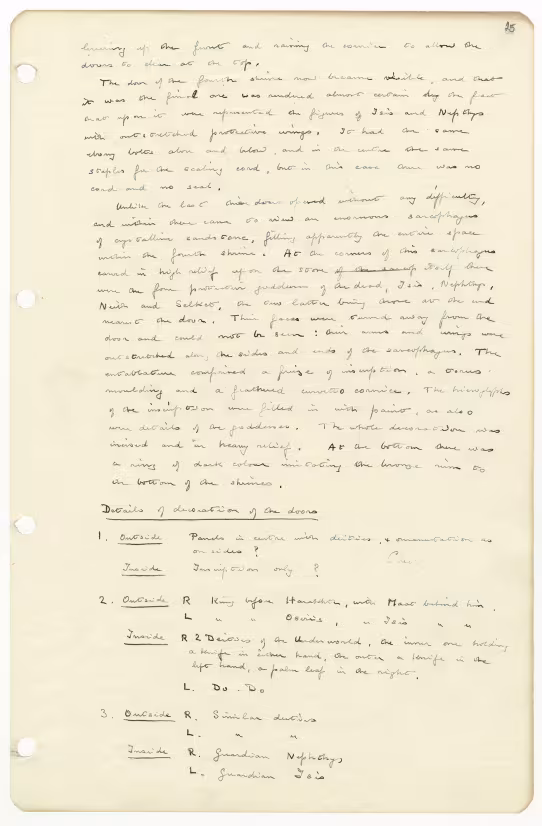 25
up the front and raising the cornice to allow the
doors to clear at the top.
The door of the fourth shrine now became visible, and that
it was the final one was rendered almost certain by the fact
that upon it were represented the figures of Isis and Nephthys
with outstretched protective wings. It had the same
ebony bolts above and below, and in the centre the same
staples for the sealing cord, but in this case there was no
cord and no seal.
Unlike the last this door opened without any difficulty,
and within there came to view an enormous sarcophagus
of crystalline sandstone, filling apparently the entire space
within the fourth shrine. At the corners of this sarcophagus
carved in high relief upon the stone of the itself there
were the four protective goddesses of the dead, Isis, Nephthys,
Neith and Selket, the two latter being those at the end
nearest the door. Their faces were turned away from the
door and could not be seen: their arms and wings were
outstretched along the sides and ends of the sarcophagus. The
entablature comprised a frieze of inscription, a torus
moulding and a feathered cavetto cornice. The hieroglyphs
of the inscription were filled in with paint, as also
were details of the goddesses. The whole decoration was
incised and in heavy relief. At the bottom there was
a ring of dark colour imitating the bronze rim to
the bottom of the shrines.
Details of decoration of the doors
1. Outside Panels in centre with deities, & ornamentation as
on sides ?
Inside Inscription only ?
2. Outside R King before Harakhte, with Maat behind him.
L " " Osiris, " Isis " "
Inside R 2 Deities of the Underworld, the inner one holding
a knife in either hand, the outer a knife in the
left hand, a palm leaf in the right.
L. Do - Do
3. Outside R. Similar deities
L. " "
Inside R. Guardian Nephthys
L. Guardian Isis